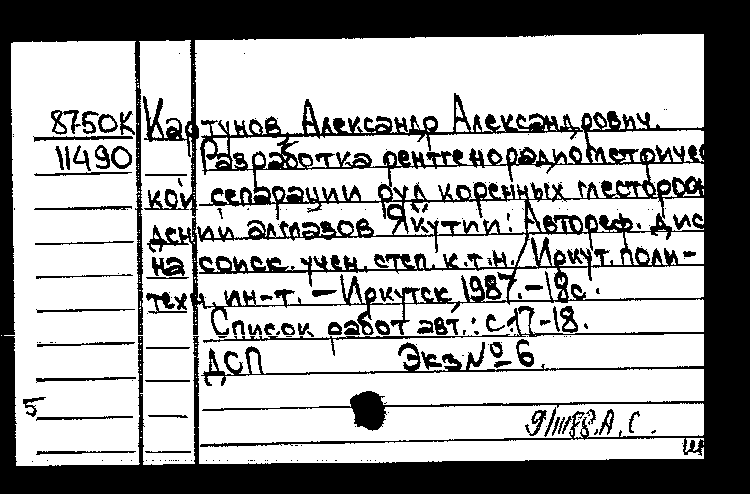 8750К Картунов, Александр Александрович.
11490 Разработка рентгенорадиометричес
кой сепарации руд коренных месторож
дений алмазов Якутии: Автореф. дис
на соиск. учен. степ. к.т.н. / Иркут. поли-
техн. ин-т. — Иркутск, 1987. — 18с.
Список работ авт.: с.17-18.
ДСП Экз № 6.
9/III88. А. С.